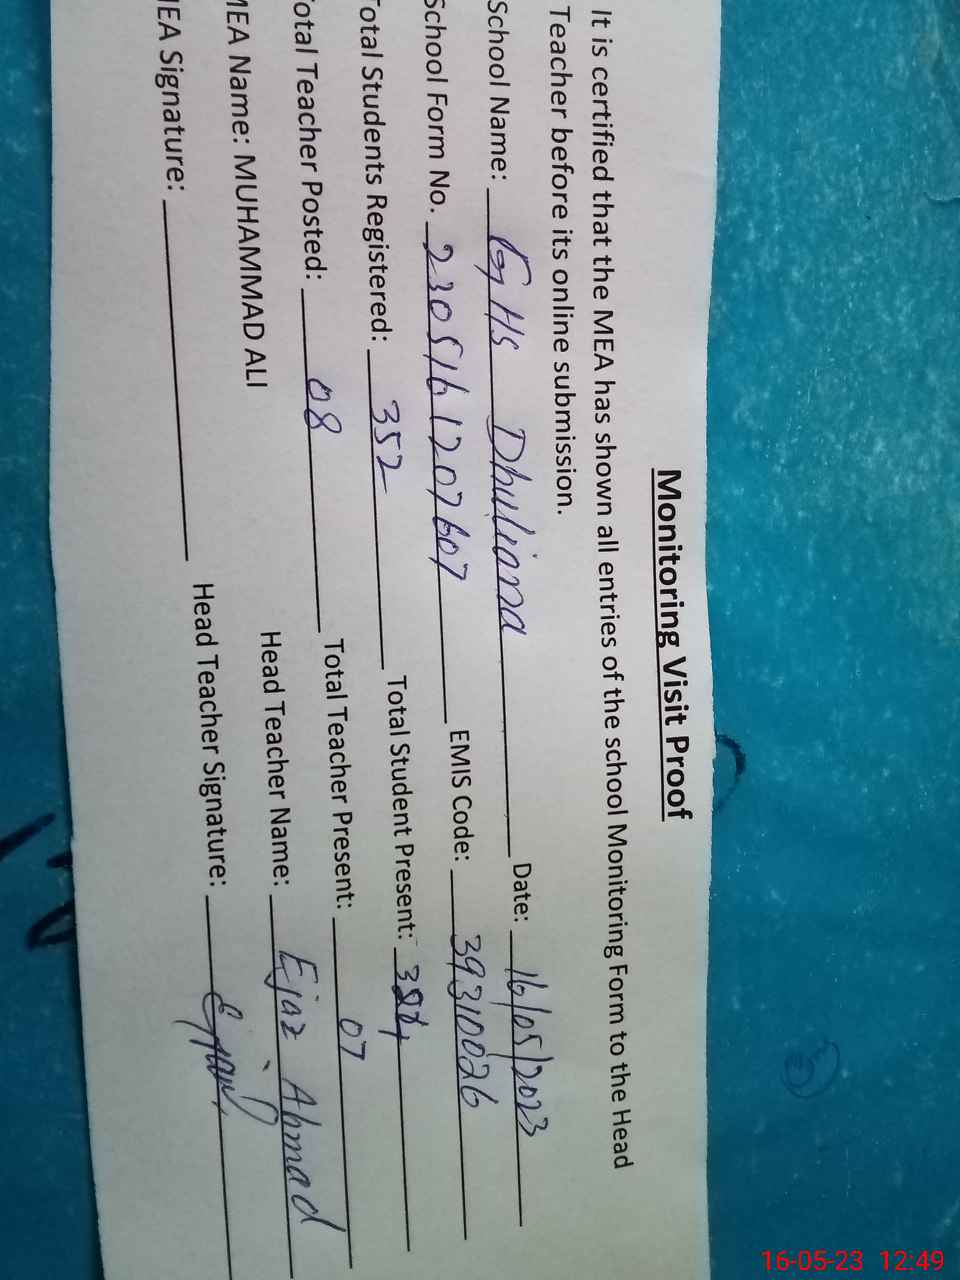 Monitoring Visit Proof
It is certified that the MEA has shown all entries of the school Monitoring Form to the Head
Teacher before its online submission.
School Name: GHS Dhuliana Date: 16/05/2023
School Form No. 2305161207607 EMIS Code: 39310026
Total Students Registered: 352 Total Student Present:
Total Teacher Posted: 08 Total Teacher Present: 07
MEA Name: MUHAMMAD ALI Head Teacher Name: Ejaz Ahmad
MEA Signature: Head Teacher Signature:
16-05-23 12:49